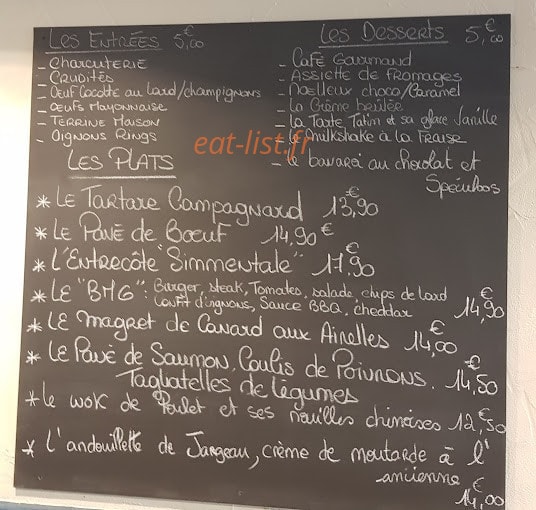 Les Entrées 5,00€
- Charcuterie
- Crudités
- Oeuf Cocotte au Lard/champignons
- Oeufs Mayonnaise
- Terrine Maison
- Oignons Rings
Les Desserts 5,00€
- Café Gourmand
- Assiette de fromages
- Moelleux choco/Caramel
- La Crème brûlée
- La Tarte Tatin et sa glace Vanille
- le milkshake à la Fraise
- le bavaroi au chocolat et
Spéculoos
eat-list.fr
Les Plats
* Le Tartare Campagnard 13,90€
* Le Pavé de Boeuf 14,90€
* L'Entrecôte "Simmentale" 17,90€
* Le "BMG": Burger, steak, Tomates, salade, chips de lard
confit d'ignons, Sauce BBQ, cheddar 14,90€
* Le magret de Canard aux Airelles 14,00€
* Le Pavé de Saumon, Coulis de Poivrons, 14,50€
Tagliatelles de légumes
* le wok de Poulet et ses nouilles chinoises 12,50€
* L'andouillette de Jargeau, crème de moutarde à l'
ancienne
14,00€